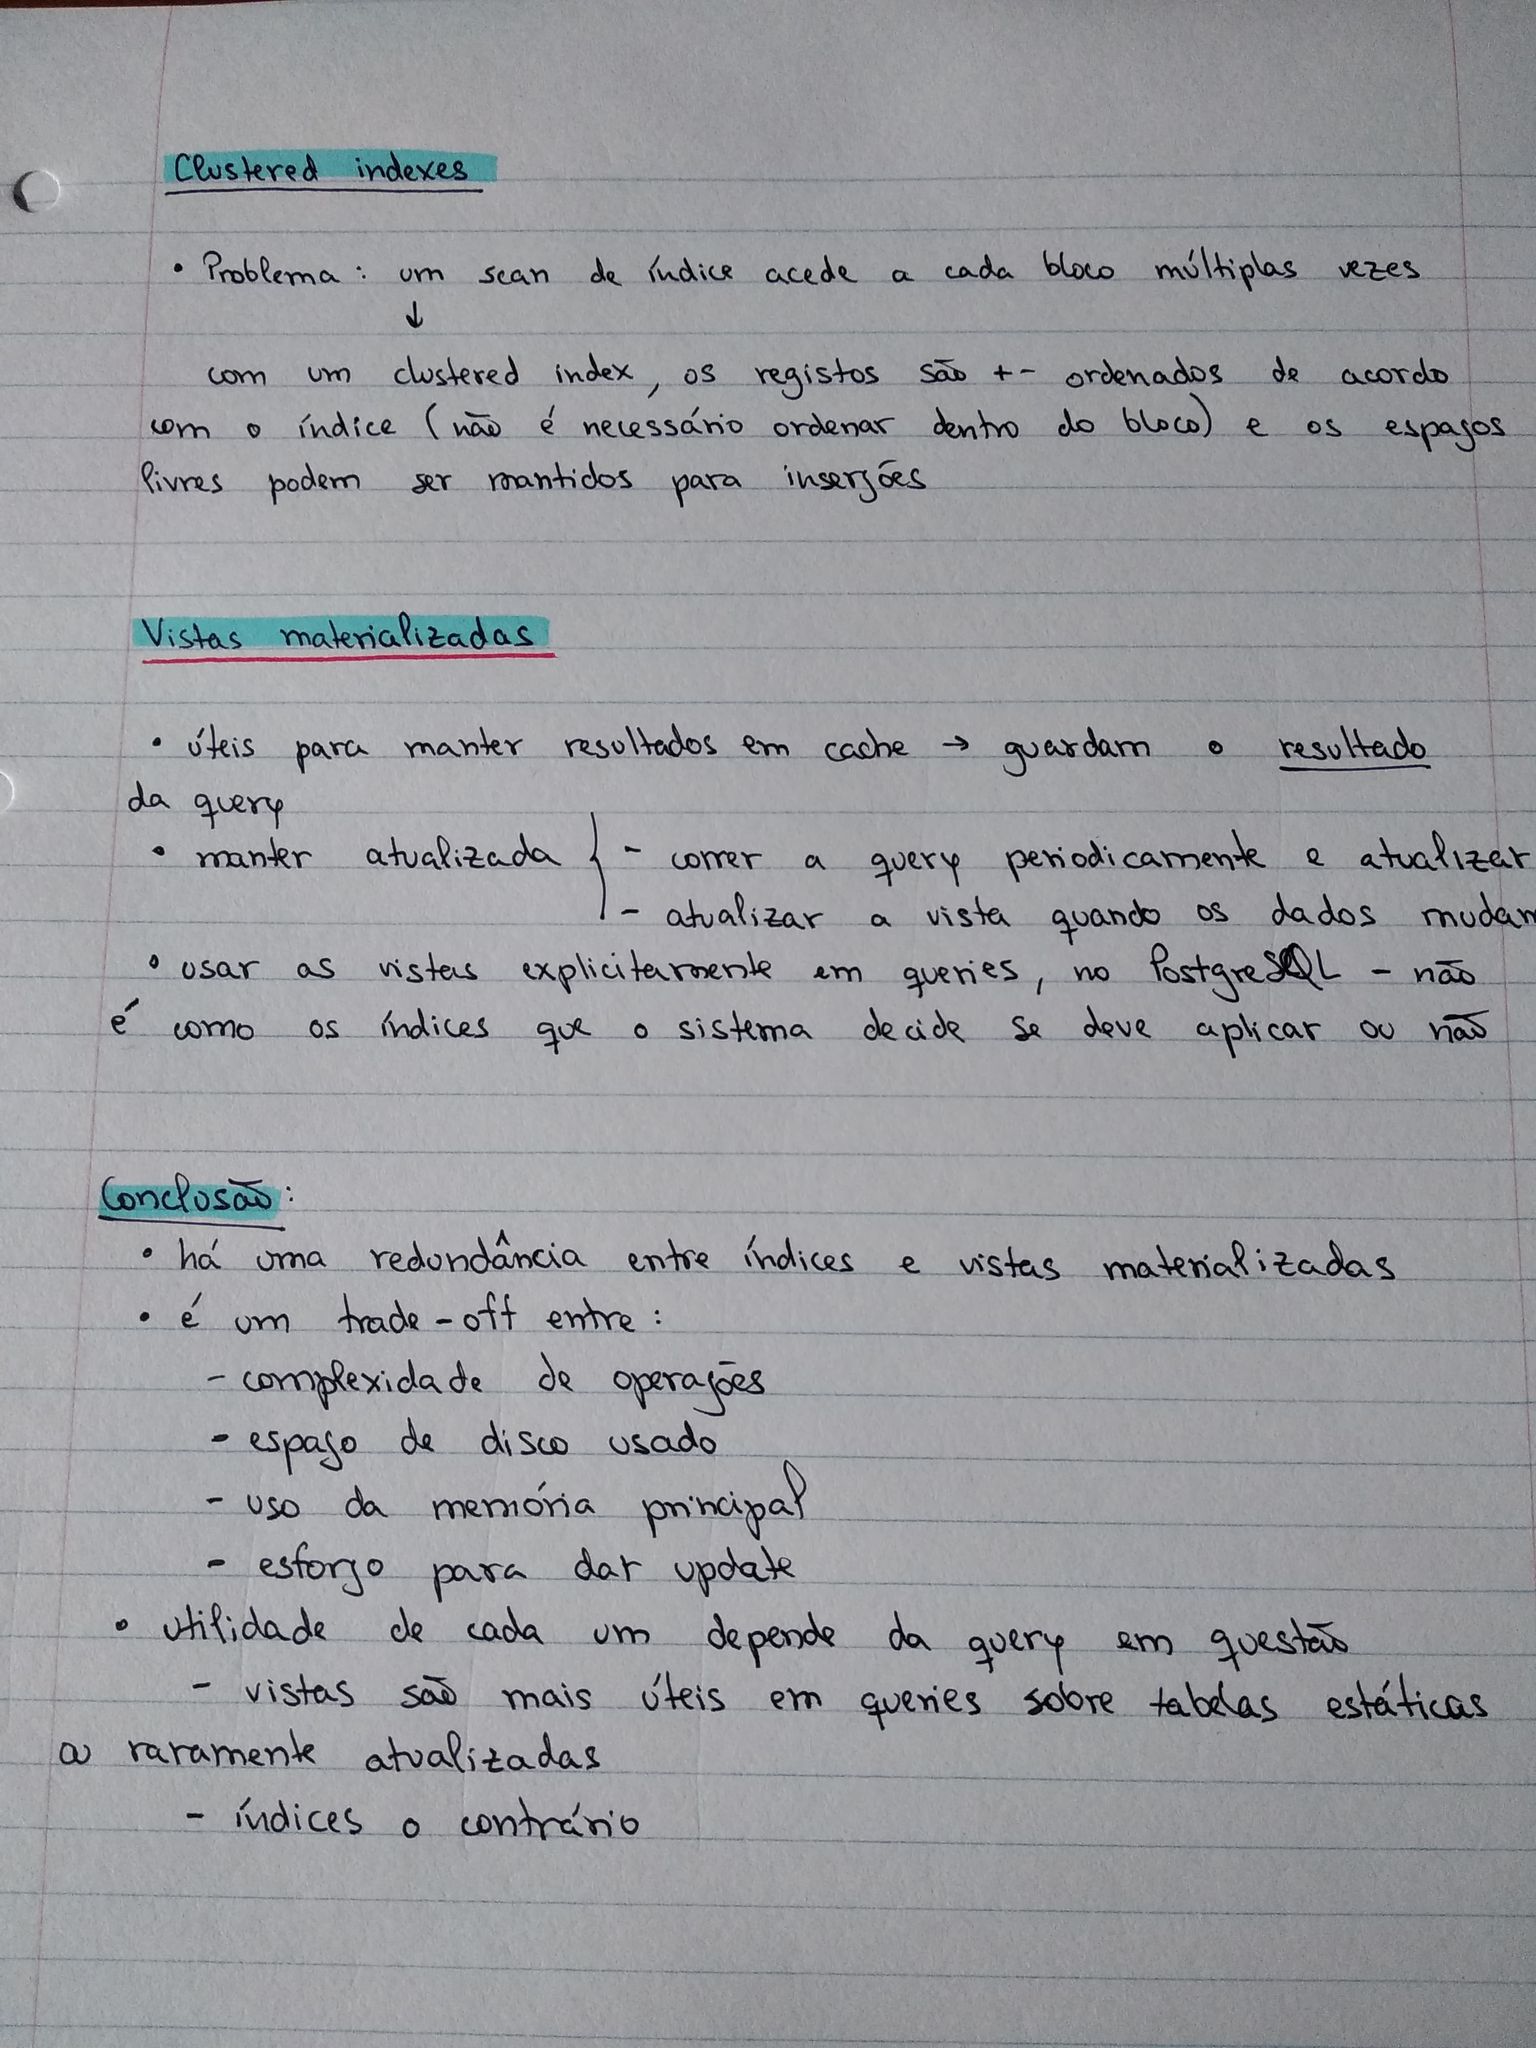 Clustered indexes
• Problema: um scan de índice acede a cada bloco múltiplas vezes
↓
com um clustered index, os registos são +- ordenados de acordo
com o índice (não é necessário ordenar dentro do bloco) e os espaços
livres podem ser mantidos para inserções
Vistas materializadas
• úteis para manter resultados em cache → guardam o resultado
da query
• manter atualizada { - correr a query periodicamente e atualizar
- atualizar a vista quando os dados mudam
• usar as vistas explicitamente em queries, no PostgreSQL - não
é como os índices que o sistema decide se deve aplicar ou não
Conclusão:
• há uma redundância entre índices e vistas materializadas
• é um trade-off entre:
- complexidade de operações
- espaço de disco usado
- uso da memória principal
- esforço para dar update
• utilidade de cada um depende da query em questão
- vistas são mais úteis em queries sobre tabelas estáticas
ou raramente atualizadas
- índices o contrário